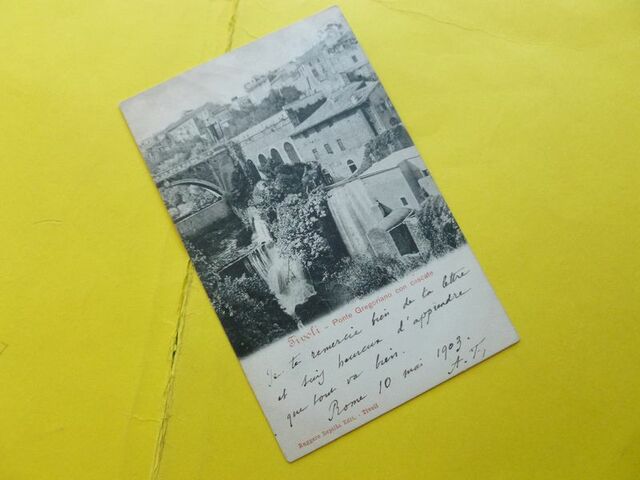 Tivoli - Ponte Gregoriano con cascate
Je te remercie bien de la lettre
et suis heureux d'apprendre
que tout va bien.
Rome 10 mai 1903.
A. T,
Ruggero Edit. - Tivoli